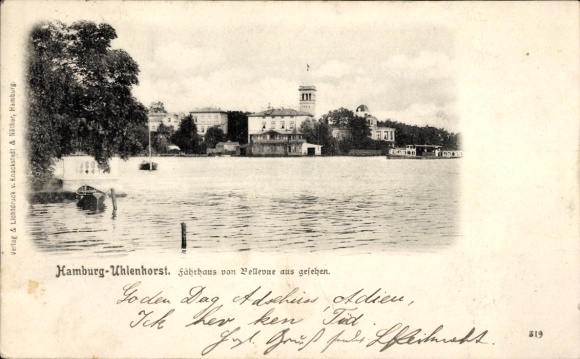 Verlag & Lichtdruck v. Knackstedt & Näther, Hamburg.
Hamburg-Uhlenhorst. Fährhaus von Bellevue aus gesehen.
Goden Dag Adschüs, Adien,
Ick hev ken Tid
Hzl. Gruß
319